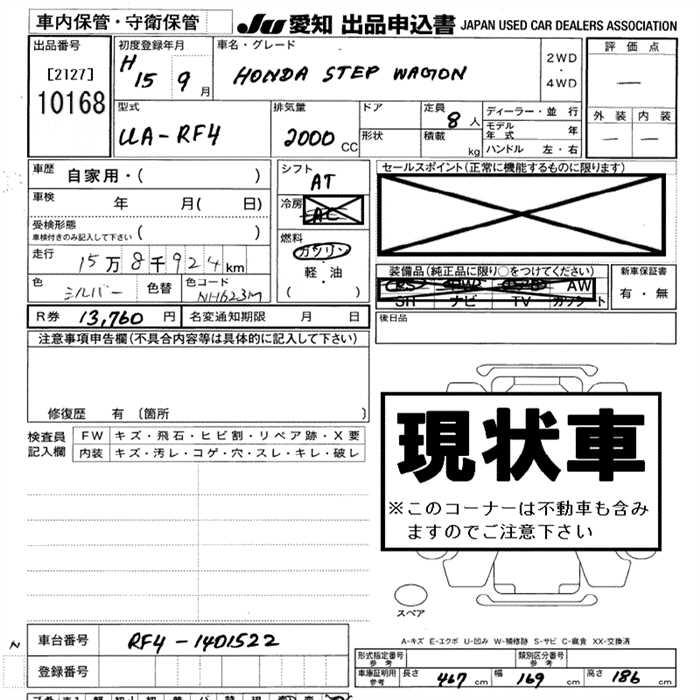 車内保管・守衛保管
JU 愛知 出品申込書 JAPAN USED CAR DEALERS ASSOCIATION
出品番号
[2127]
10168
初度登録年月
H 15 9 月
車名・グレード
HONDA STEP WAGON
2WD
・
4WD
評価点
—
外装 内装
— —
型式
UA-RF4
排気量
2000 CC
ドア
形状
定員
8 人
積載
kg
ディーラー・並行
モデル年式 年
ハンドル 左・右
車歴 自家用・( )
車検 年 月( 日)
受検形態
車検付きのみ記入して下さい ( )
走行 15万8千924km
色 シルバー 色替 色コード NH623M
シフト
AT
冷房
AC
燃料
ガソリン
・
軽・油
( )
セールスポイント(正常に機能するものに限ります)
装備品(純正品に限り○をつけてください)
AW
SH ナビ TV カセット
新車保証書
有・無
R券 13,760 円 名変通知期限 月 日
後日品
注意事項申告欄(不具合内容等は具体的に記入して下さい)
修復歴 有 [箇所 ]
検査員
記入欄
FW キズ・飛石・ヒビ割・リペア跡・X要
内装 キズ・汚レ・コゲ・穴・スレ・キレ・破レ
現状車
※このコーナーは不動車も含み
ますのでご注意下さい
スペア
A-キズ E-エクボ U-凹み W-補修跡 S-サビ C-腐食 XX-交換済
N
車台番号 RF4-1401522
登録番号
形式指定番号
参考
類別区分番号
参考
車庫証明用
参考
長さ 467 cm 幅 169 cm 高さ 186 cm